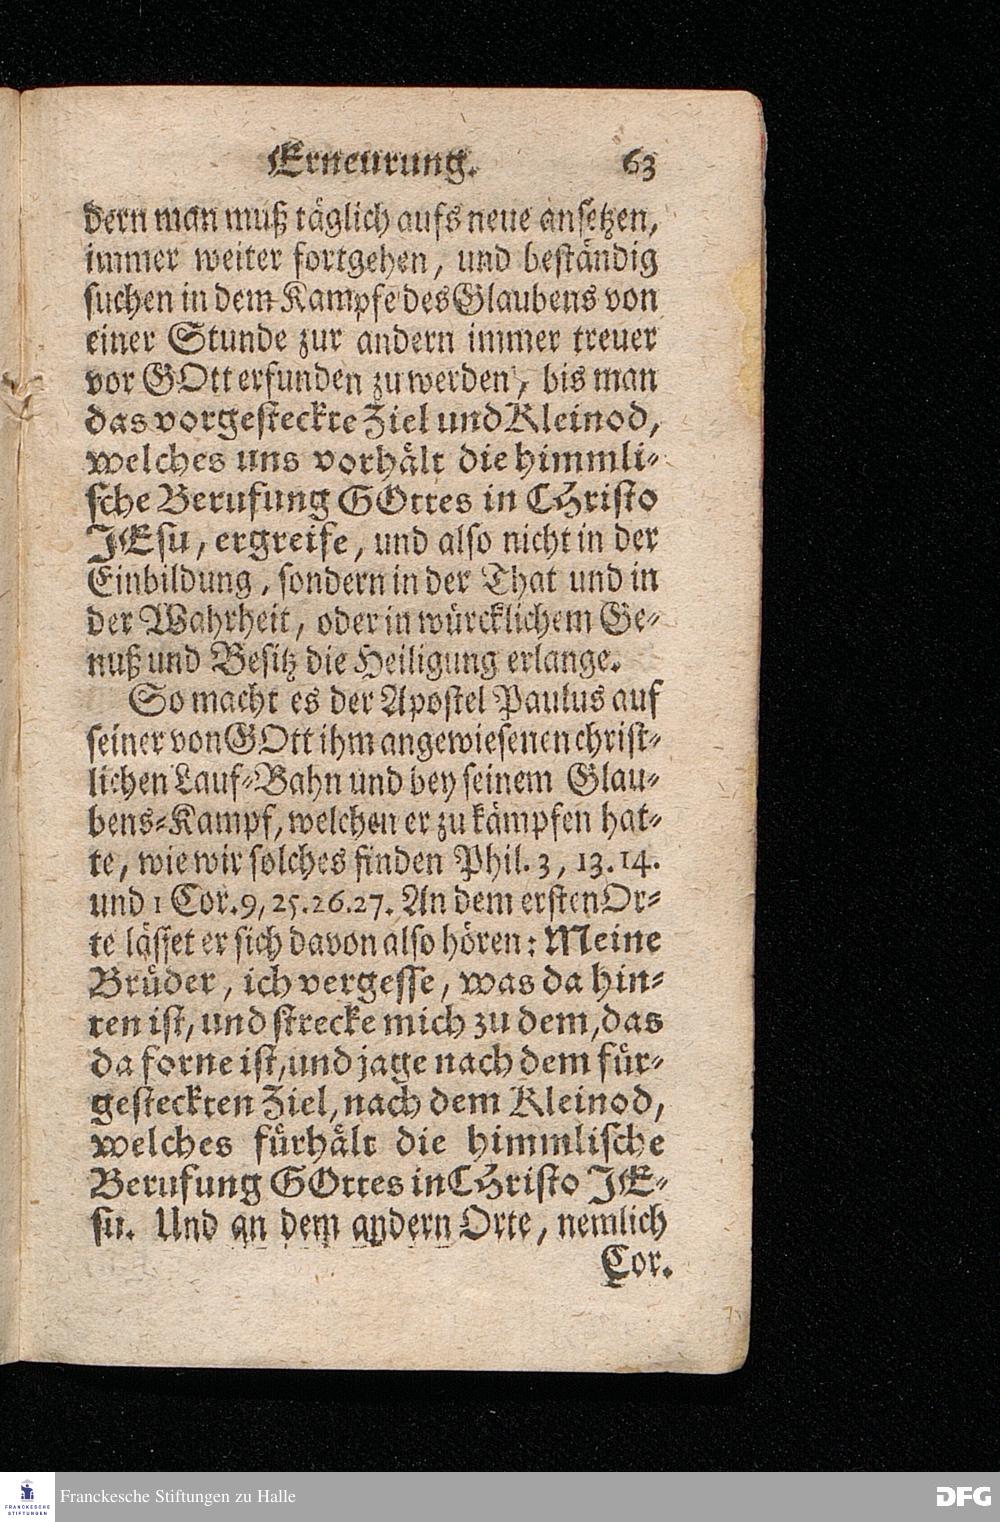 Erneurung. 63
dern man muß täglich aufs neue ansetzen,
immer weiter fortgehen, und beständig
suchen in dem Kampfe des Glaubens von
einer Stunde zur andern immer treuer
vor GOtt erfunden zu werden, bis man
das vorgesteckte Ziel und Kleinod,
welches uns vorhält die himmli-
sche Berufung GOttes in CHristo
JEsu, ergreife, und also nicht in der
Einbildung, sondern in der That und in
der Wahrheit, oder in würcklichem Ge-
nuß und Besitz die Heiligung erlange.
So macht es der Apostel Paulus auf
seiner von GOtt ihm angewiesenen christ-
lichen Lauf-Bahn und bey seinem Glau-
bens-Kampf, welchen er zu kämpfen hat-
te, wie wir solches finden Phil. 3, 13. 14.
und 1 Cor. 9, 25. 26. 27. An dem ersten Or-
te lässet er sich davon also hören: Meine
Brüder, ich vergesse, was da hin-
ten ist, und strecke mich zu dem, das
da forne ist, und jage nach dem für-
gesteckten Ziel, nach dem Kleinod,
welches fürhält die himmlische
Berufung GOttes in CHristo JE-
su. Und an dem andern Orte, nemlich
Cor.
FRANCKESCHE STIFTUNGEN
Franckesche Stiftungen zu Halle
DFG